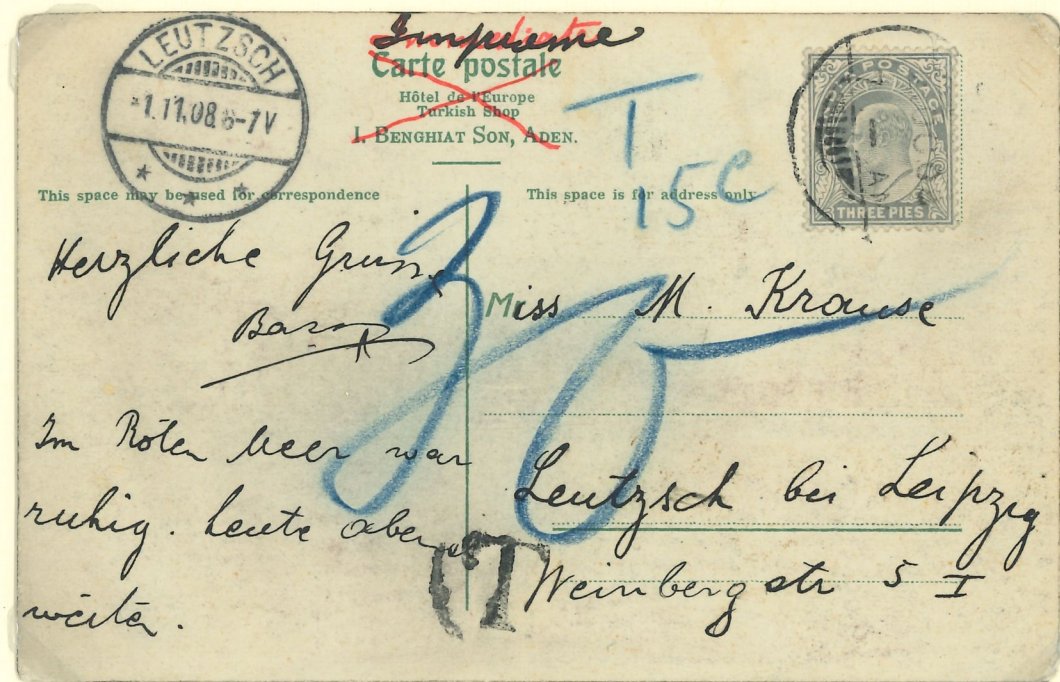 LEUTZSCH
1.11.08.6-7V
Imprimé
Carte postale
Hôtel de l'Europe
Turkish Shop
I. BENGHIAT SON, ADEN.
T
15c
POSTAGE
THREE PIES
This space may be used for correspondence
This space is for address only
Herzliche Grüsse
Im Roten Meer war
ruhig. heute abend
weiter.
Miss M. Krause
Leutzsch bei Leipzig
Weinbergstr 5 I
T